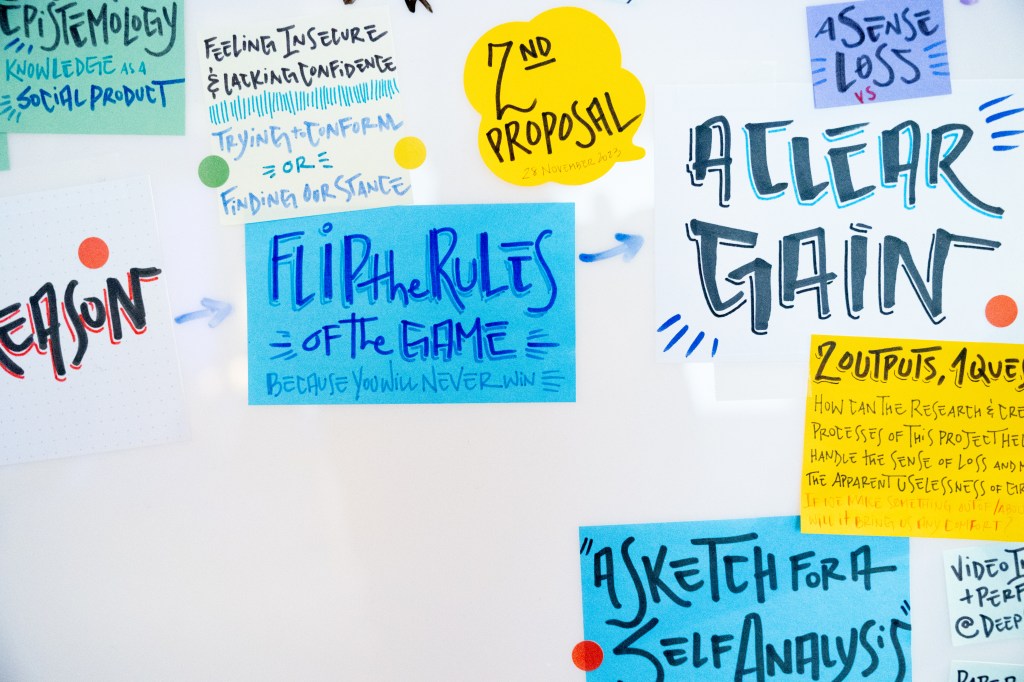 EPISTEMOLOGY
KNOWLEDGE AS A
SOCIAL PRODUCT
FEELING INSECURE
& LACKING CONFIDENCE
TRYING to CONFORM
OR
FINDING OUR STANCE
2ND
PROPOSAL
28 NOVEMBER 2023
A SENSE
LOSS
VS
A CLEAR
GAIN
EASON
FLIP the RULES
OF the GAME
BECAUSE YOU WILL NEVER WIN
2 OUTPUTS, 1 QUES
HOW CAN THE RESEARCH & CRE
PROCESSES OF THIS PROJECT HEL
HANDLE THE SENSE OF LOSS AND
THE APPARENT USELESSNESS OF
IF WE MAKE SOMETHING OUT OF
WILL IT BRING US ANY COMFORT?
"A SKETCH FOR A
SELF ANALYSIS"
VIDEO IN
+ PERF
@ DEEP